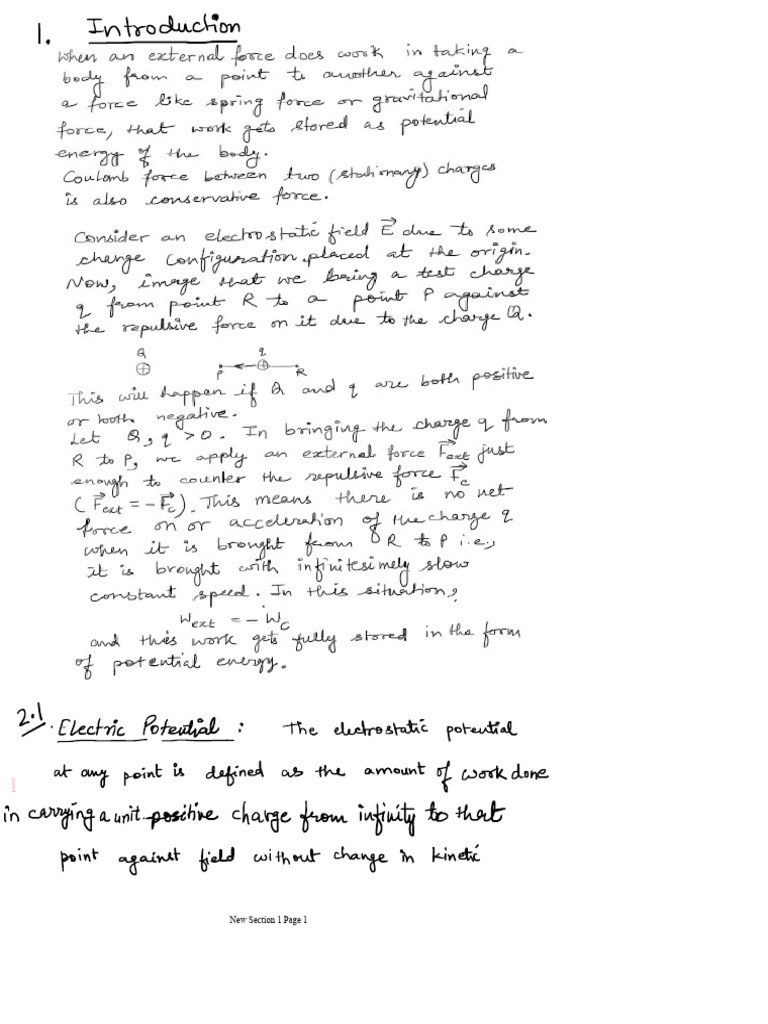 1. Introduction
When an external force does work in taking a
body from a point to another against
a force like spring force or gravitational
force, that work gets stored as potential
energy of the body.
Coulomb force between two (stationary) charges
is also conservative force.
Consider an electrostatic field E⃗ due to some
change configuration placed at the origin.
Now, image that we bring a test charge
q from point R to a point P against
the repulsive force on it due to the charge Q.
Q q
⊕ P ⊕ R
This will happen if Q and q are both positive
or both negative.
Let Q, q > 0. In bringing the charge q from
R to P, we apply an external force F⃗ext just
enough to counter the repulsive force F⃗c
(F⃗ext = -F⃗c). This means there is no net
force on or acceleration of the charge q
when it is brought from R to P i.e.,
it is brought with infinitesimely slow
constant speed. In this situation,
Wext = - Wc
and this work gets fully stored in the form
of potential energy.
2.1. Electric Potential : The electrostatic potential
at any point is defined as the amount of work done
in carrying a unit positive charge from infinity to that
point against field without change in kinetic
New Section 1 Page 1